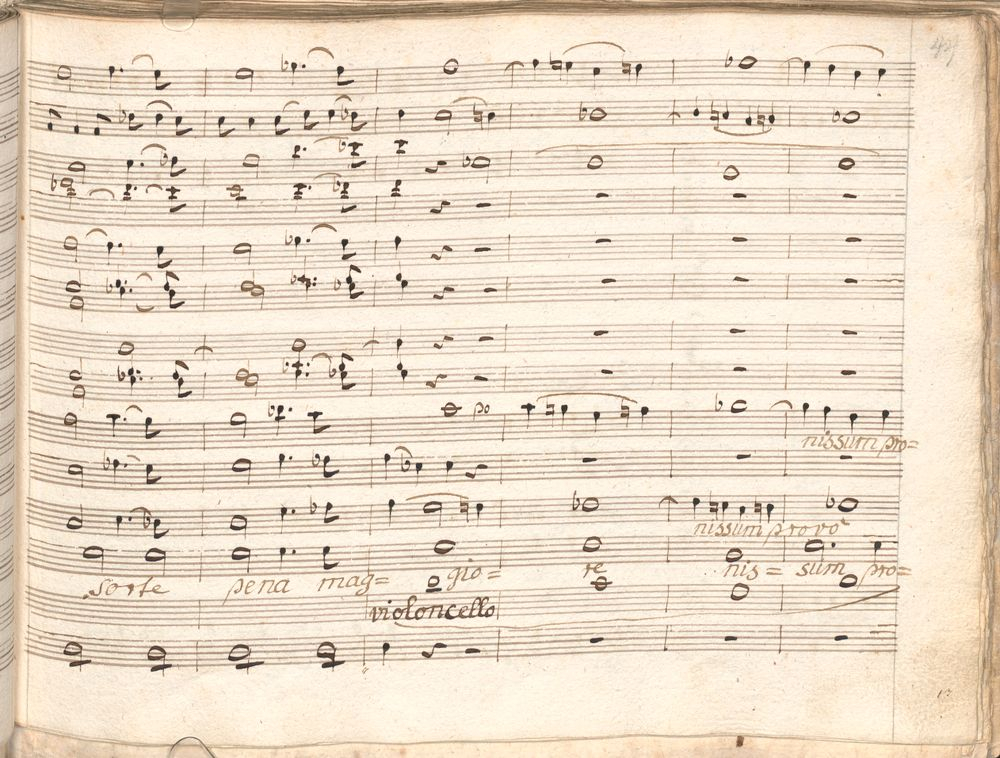 po
nissum pro=
nissum provò
sorte pena mag= gio= re nis= sum pro=
violoncello